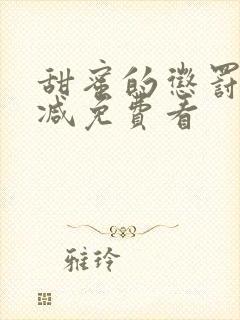 甜蜜的懲罰
減免費看
雅玲